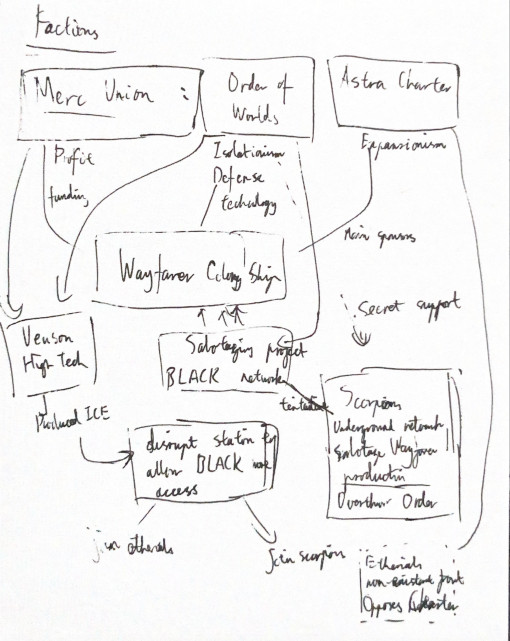 Factions
Merc Union :
Order of
Worlds
Astra Charter
Profit
funding
Isolationism
Defense
technology
Expansionism
Main sponsors
Wayfarer Colony Ship
Secret support
Venson
High Tech
Sabotaging project
BLACK network
Produced ICE
Scorpions
Underground network
Sabotage Wayfarer
production
Overthrow Order
disrupt station
allow BLACK
access
join etherials
Join scorpion
Etherials
non-existent
Opposes